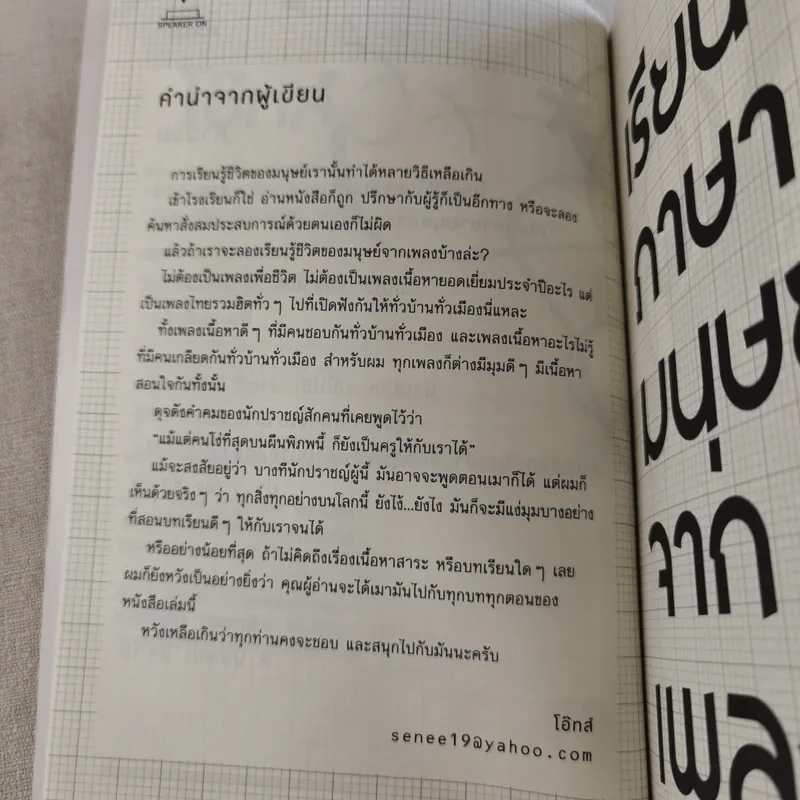 SPEAKER ON
คำนำจากผู้เขียน
การเรียนรู้ชีวิตของมนุษย์เรานั้นทำได้หลายวิธีเหลือเกิน
เข้าโรงเรียนก็ใช่ อ่านหนังสือก็ถูก ปรึกษากับผู้รู้ก็เป็นอีกทาง หรือจะลอง
ค้นหาสั่งสมประสบการณ์ด้วยตนเองก็ไม่ผิด
แล้วถ้าเราจะลองเรียนรู้ชีวิตของมนุษย์จากเพลงบ้างล่ะ?
ไม่ต้องเป็นเพลงเพื่อชีวิต ไม่ต้องเป็นเพลงเนื้อหายอดเยี่ยมประจำปีอะไร แต่
เป็นเพลงไทยรวมฮิตทั่วๆ ไปที่เปิดฟังกันให้ทั่วบ้านทั่วเมืองนี่แหละ
ทั้งเพลงเนื้อหาดีๆ ที่มีคนชอบกันทั่วบ้านทั่วเมือง และเพลงเนื้อหาอะไรไม่รู้
ที่มีคนเกลียดกันทั่วบ้านทั่วเมือง สำหรับผม ทุกเพลงก็ต่างมีมุมดีๆ มีเนื้อหา
สอนใจกันทั้งนั้น
ดุจดังคำคมของนักปราชญ์สักคนที่เคยพูดไว้ว่า
"แม้แต่คนโง่ที่สุดบนผืนพิภพนี้ ก็ยังเป็นครูให้กับเราได้"
แม้จะสงสัยอยู่ว่า บางทีนักปราชญ์ผู้นี้ มันอาจจะพูดตอนเมาก็ได้ แต่ผมก็
เห็นด้วยจริงๆ ว่า ทุกสิ่งทุกอย่างบนโลกนี้ ยังไง้...ยังไง มันก็จะมีแง่มุมบางอย่าง
ที่สอนบทเรียนดีๆ ให้กับเราจนได้
หรืออย่างน้อยที่สุด ถ้าไม่คิดถึงเรื่องเนื้อหาสาระ หรือบทเรียนใดๆ เลย
ผมก็ยังหวังเป็นอย่างยิ่งว่า คุณผู้อ่านจะได้เมามันไปกับทุกบททุกตอนของ
หนังสือเล่มนี้
หวังเหลือเกินว่าทุกท่านคงจะชอบ และสนุกไปกับมันนะครับ
โอ๊ทส์
senee19@yahoo.com
เรียน
ภาษา
มนุษย
จาก
เพล